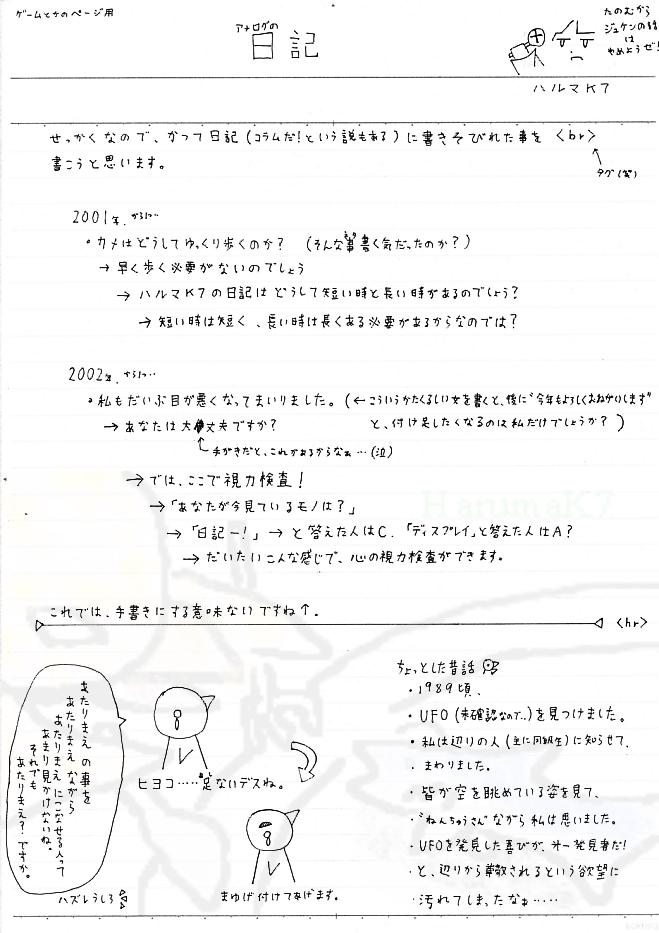 ゲームとかのページ用
アナログの
日記
たのむから
ジュケンの話
は
やめようぜ!
ハルマK7
せっかくなので、かつて日記(コラムだ!という説もある)に書きそびれた事を <br>
書こうと思います。
タグ(笑)
2001年、からは…
・カメはどうしてゆっくり歩くのか? (そんな事書く気だったのか?)
→ 早く歩く必要がないのでしょう
→ ハルマK7の日記はどうして短い時と長い時があるのでしょう?
→ 短い時は短く、長い時は長くある必要があるからなのでは?
2002年、からは…
・私もだいぶ目が悪くなってまいりました。(←こういうかたくるしい文を書くと、後に"今年もよろしくおねがいします"
と、付け足したくなるのは私だけでしょうか? )
→ あなたは大丈夫ですか?
手がきだと、これがあるからなぁ…(泣)
→ では、ここで視力検査!
→「あなたが今見ているモノは?」
→「日記ー!」→ と答えた人はC.「ディスプレイ」と答えた人はA?
→ だいたいこんな感じで、心の視力検査ができます。
HarumaK7
これでは、手書きにする意味ないですね↑.
<hr>
あたりまえの事を
あたりまえながら
あたりまえにこなせる人って
あまり見かけないね。
それでも
あたりまえ?ですか。
ハズレうしろ
ヒヨコ……足ないデスね。
まゆげ付けてあげます。
ちょっとした昔話
・1989頃、
・UFO(未確認なので..)を見つけました。
・私は辺りの人(主に同級生)に知らせて、
・まわりました。
・皆が空を眺めている姿を見て、
・"ねんちゅうさん"ながら私は思いました。
・UFOを発見した喜びが、第一発見者だ!
・と、辺りから尊敬されるという欲望に
・汚れてしまったなぁ……